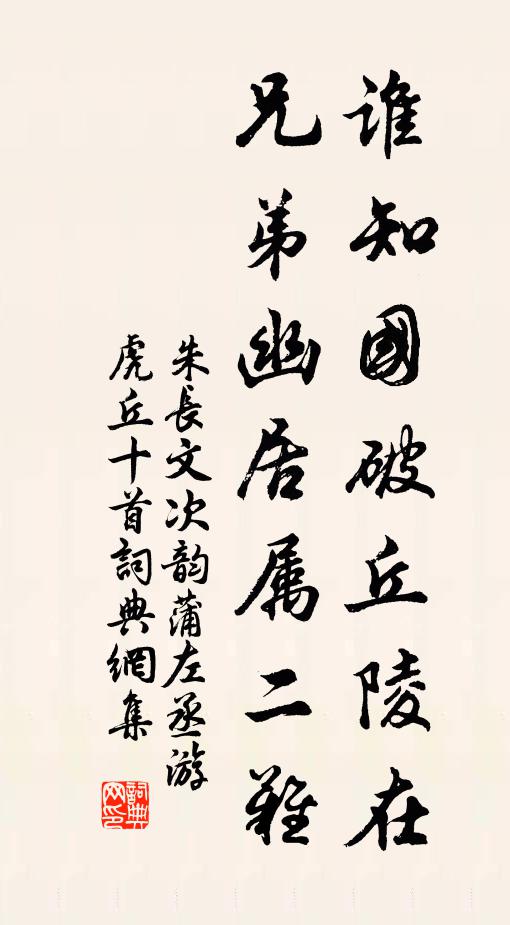 谁知國破丘陵在
兄弟幽居属二難
朱長文次韵蒲左丞游
虎丘十首詞典網集
詞典网印